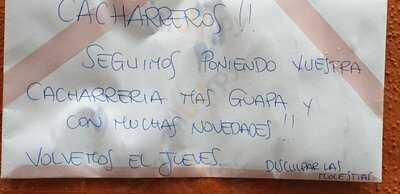 CACHARREROS!!
SEGUIMOS PONIENDO VUESTRA
CACHARRERIA MAS GUAPA Y
CON MUCHAS NOVEDADES!!
VOLVEMOS EL JUEVES
DISCULPAR LAS
MOLESTIAS